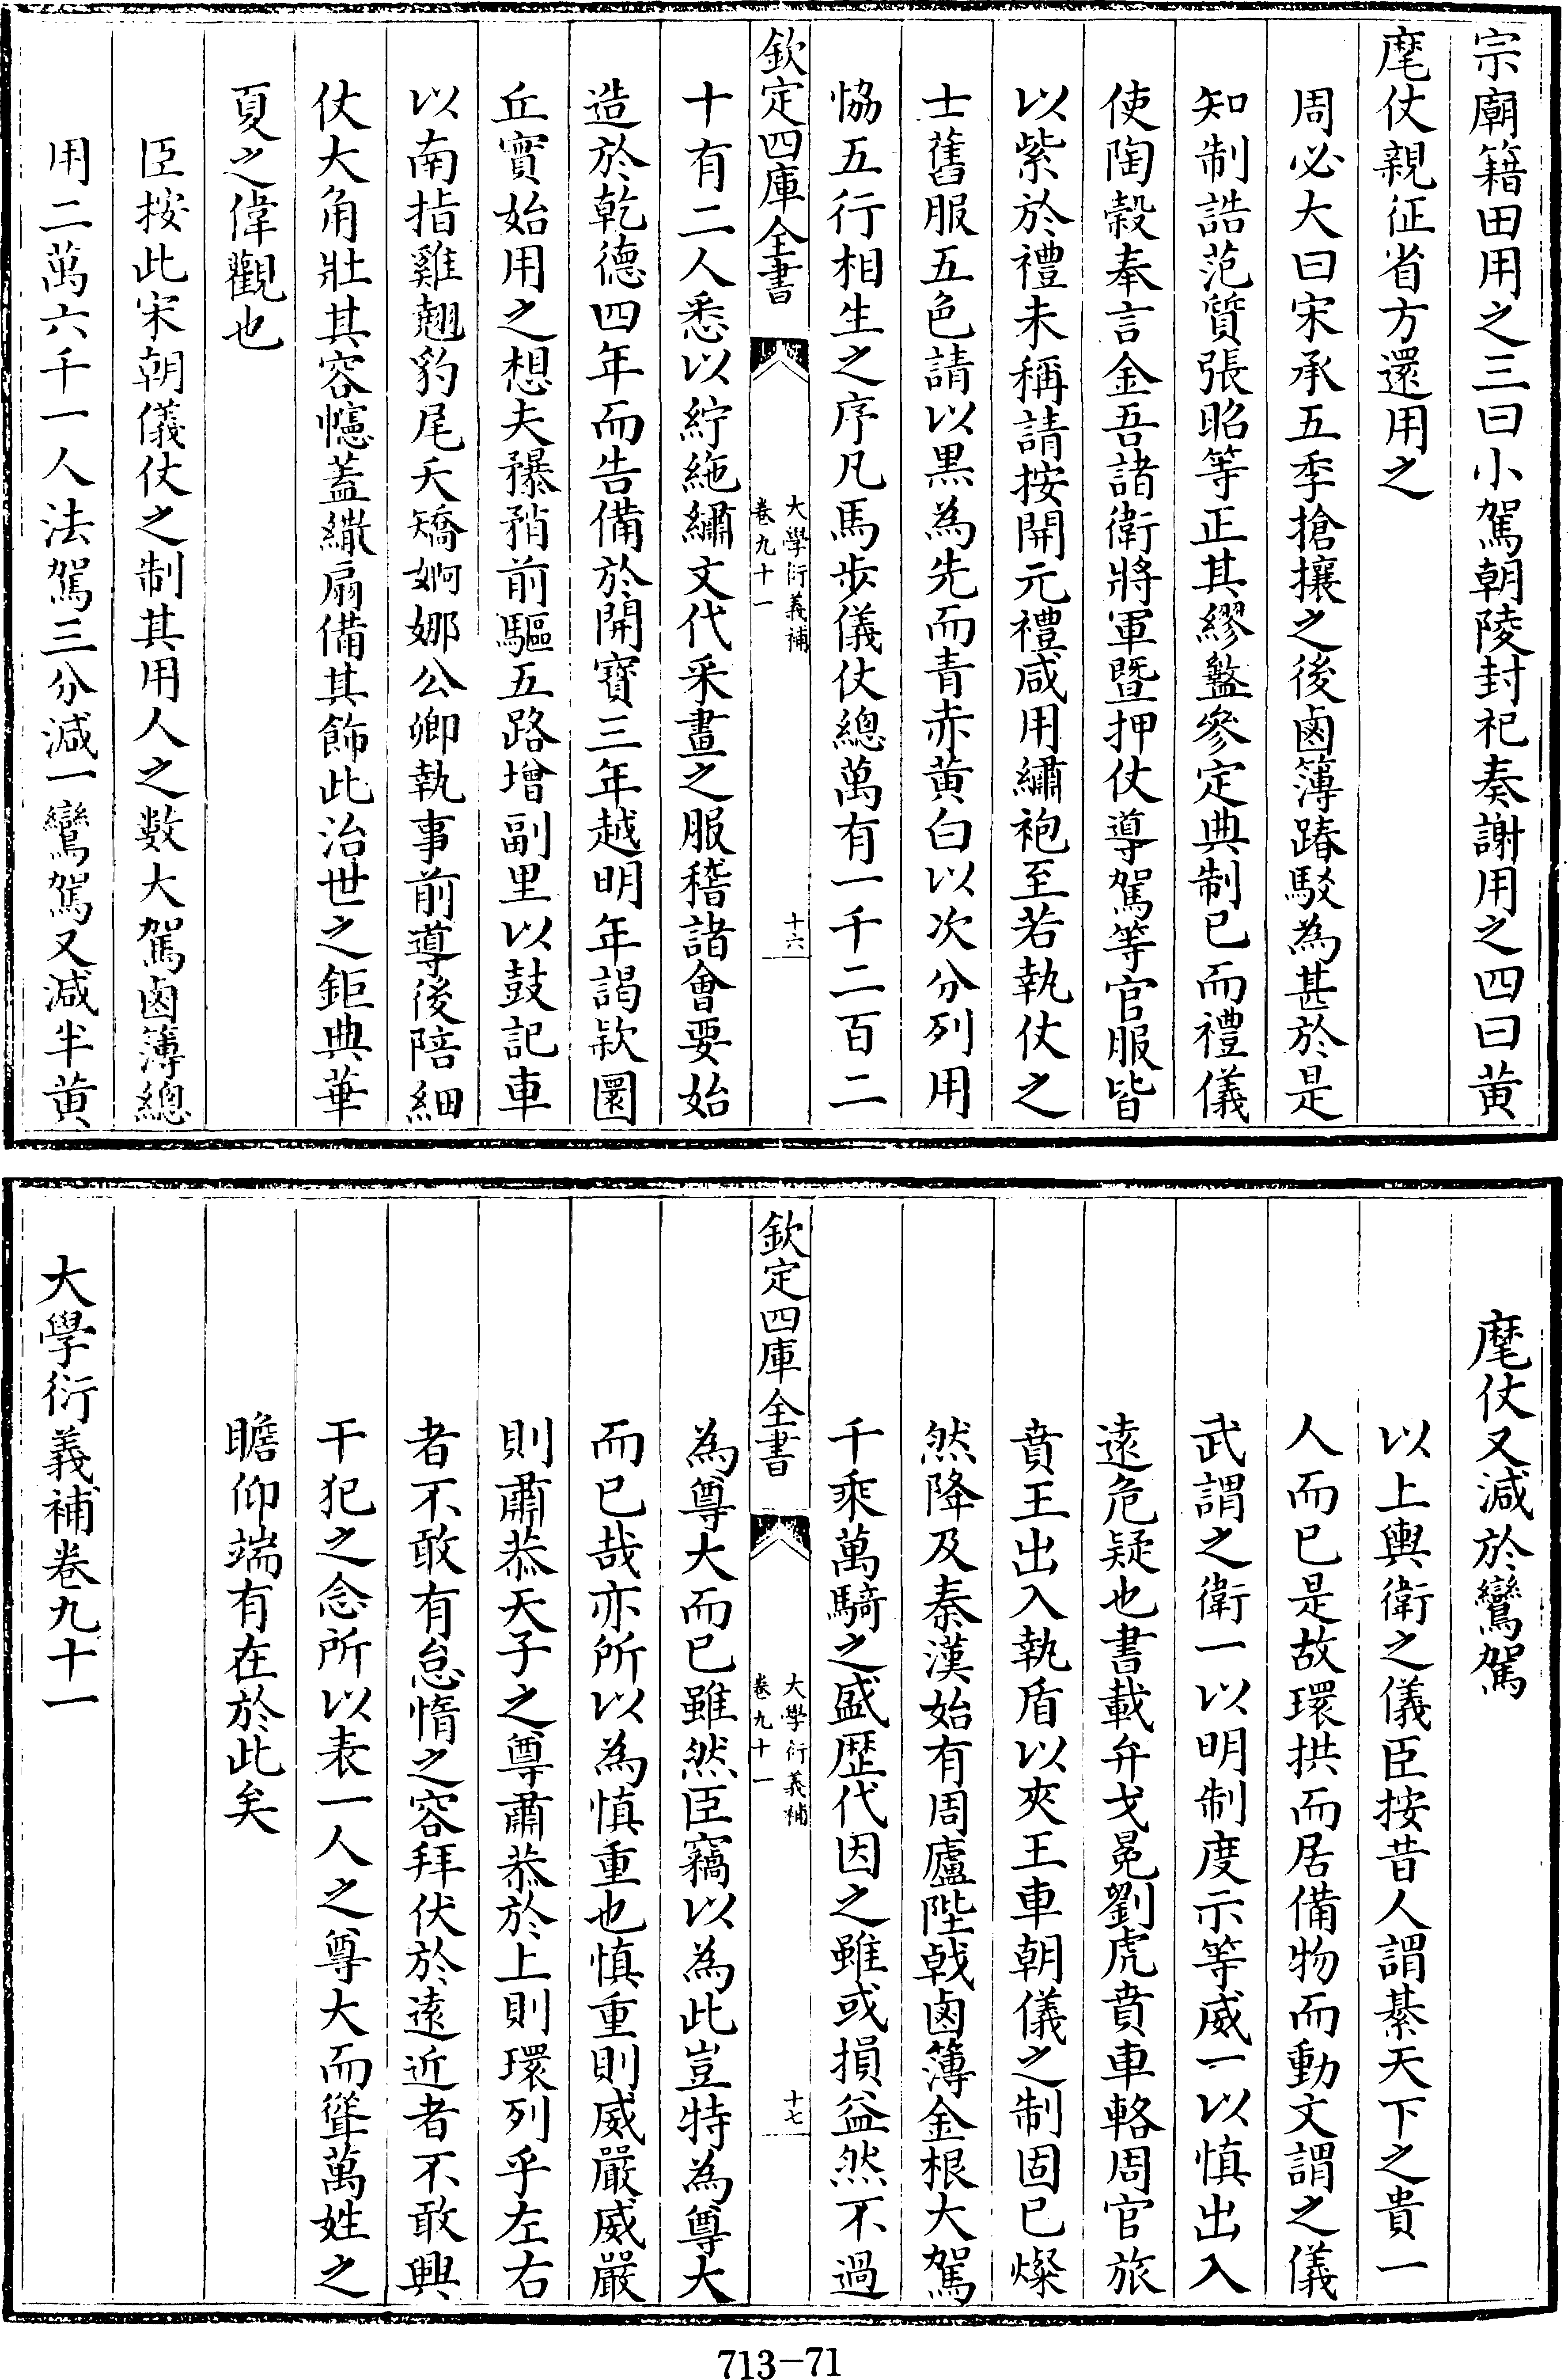 宗廟籍田用之三曰小駕朝陵封祀奏謝用之四曰黃
麾仗親征省方還用之
周必大曰宋承五季搶攘之後鹵簿踳駁為甚於是
知制誥范質張昭等正其繆盭參定典制已而禮儀
使陶穀奉言金吾諸衛將軍暨押仗導駕等官服皆
以紫於禮未稱請按開元禮咸用繡袍至若執仗之
士舊服五色請以黑為先而青赤黃白以次分列用
恊五行相生之序凡馬步儀仗總萬有一千二百二
欽定四庫全書
大學衍義補
卷九十一
十六
十有二人悉以紵絁繡文代采畫之服稽諸會要始
造於乾德四年而告備於開寶三年越明年謁欵圜
丘實始用之想夫㬥矟前驅五路增副里以鼓記車
以南指雞翹豹尾夭矯婀娜公卿執事前導後陪細
仗大角壯其容幰蓋繖扇備其飾此治世之鉅典華
夏之偉觀也
臣按此宋朝儀仗之制其用人之數大駕鹵簿總
用二萬六千一人法駕三分減一鸞駕又減半黃
麾仗又減於鸞駕
以上輿衛之儀臣按昔人謂綦天下之貴一
人而已是故環拱而居備物而動文謂之儀
武謂之衛一以明制度示等威一以慎出入
遠危疑也書載弁戈冕劉虎賁車輅周官旅
賁王出入執盾以夾王車朝儀之制固已燦
然降及秦漢始有周廬陛戟鹵簿金根大駕
千乘萬騎之盛歷代因之雖或損益然不過
欽定四庫全書
大學衍義補
卷九十一
十七
為尊大而已雖然臣竊以為此豈特為尊大
而已哉亦所以為慎重也慎重則威嚴威嚴
則肅恭天子之尊肅恭於上則環列乎左右
者不敢有怠惰之容拜伏於遠近者不敢興
干犯之念所以表一人之尊大而聳萬姓之
瞻仰端有在於此矣
大學衍義補卷九十一
713-71